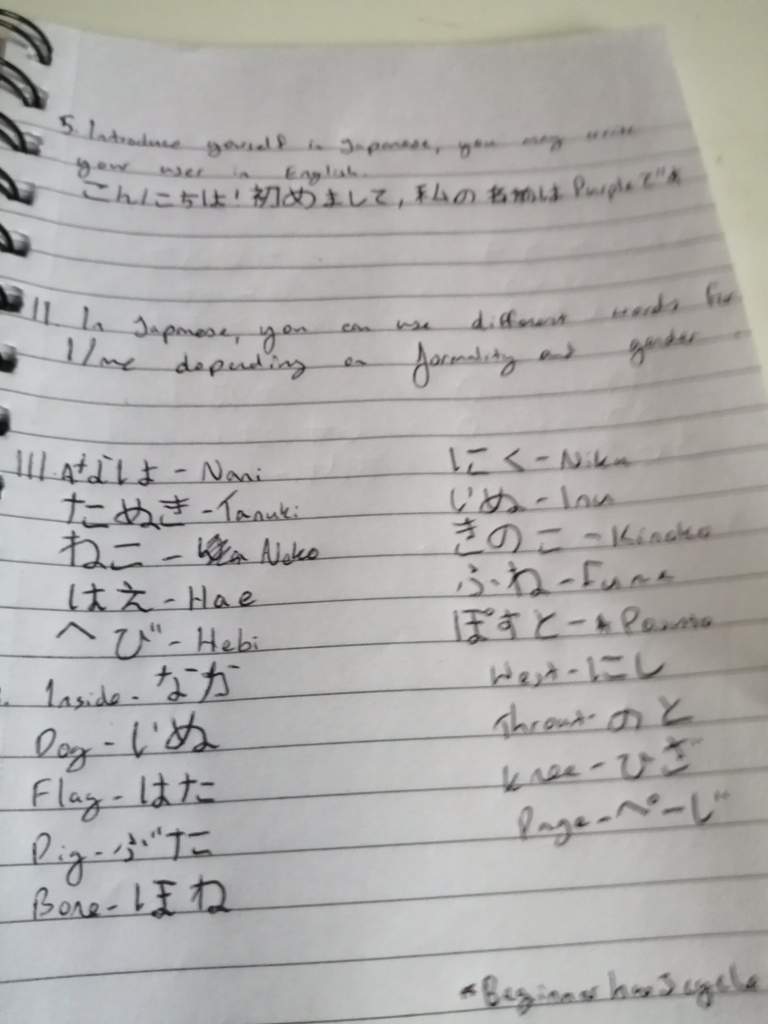 5. Introduce yourself in Japanese, you may write
your user in English.
こんにちは!初めまして,私の名前は Purple です
II. In Japanese, you can use different words for
I/me depending on formality and gender
III.
たぬき - Tanuki
にく - Niku
ねこ - Neko
いぬ - Inu
はえ - Hae
きのこ - Kinoko
へび - Hebi
ふね - Fune
Inside - なか
ぽすと -
Dog - いぬ
West - にし
Flag - はた
Throat - のど
Pig - ぶた
Knee - ひざ
Bone - ほね
Page - ぺーじ
*Beginner